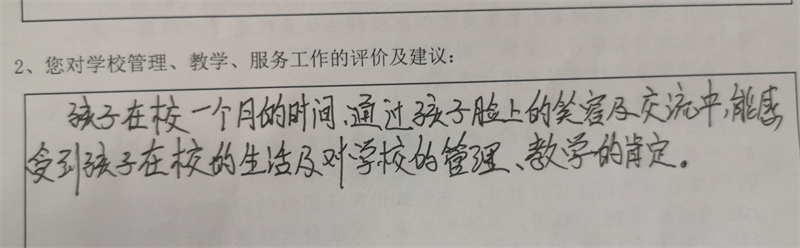 2、您对学校管理、教学、服务工作的评价及建议：
孩子在校一个月的时间，通过孩子脸上的笑容及交流中，能感
受到孩子在校的生活及对学校的管理、教学的肯定。